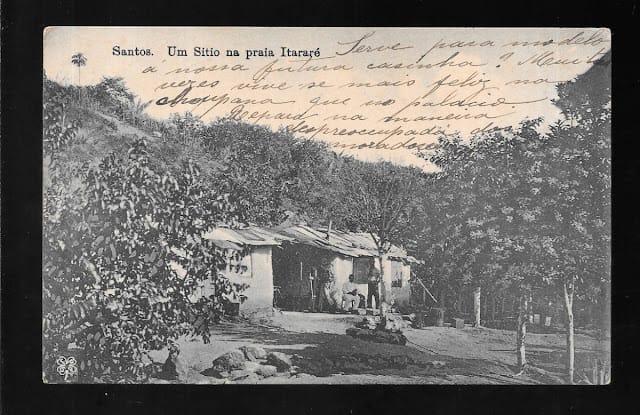 Santos. Um Sitio na praia Itararé
Serve para modelo
á nossa futura casinha? Muitas
vezes vive se mais feliz na
choupana que no palácio.
Repard na maneira
despreocupada dos
moradores